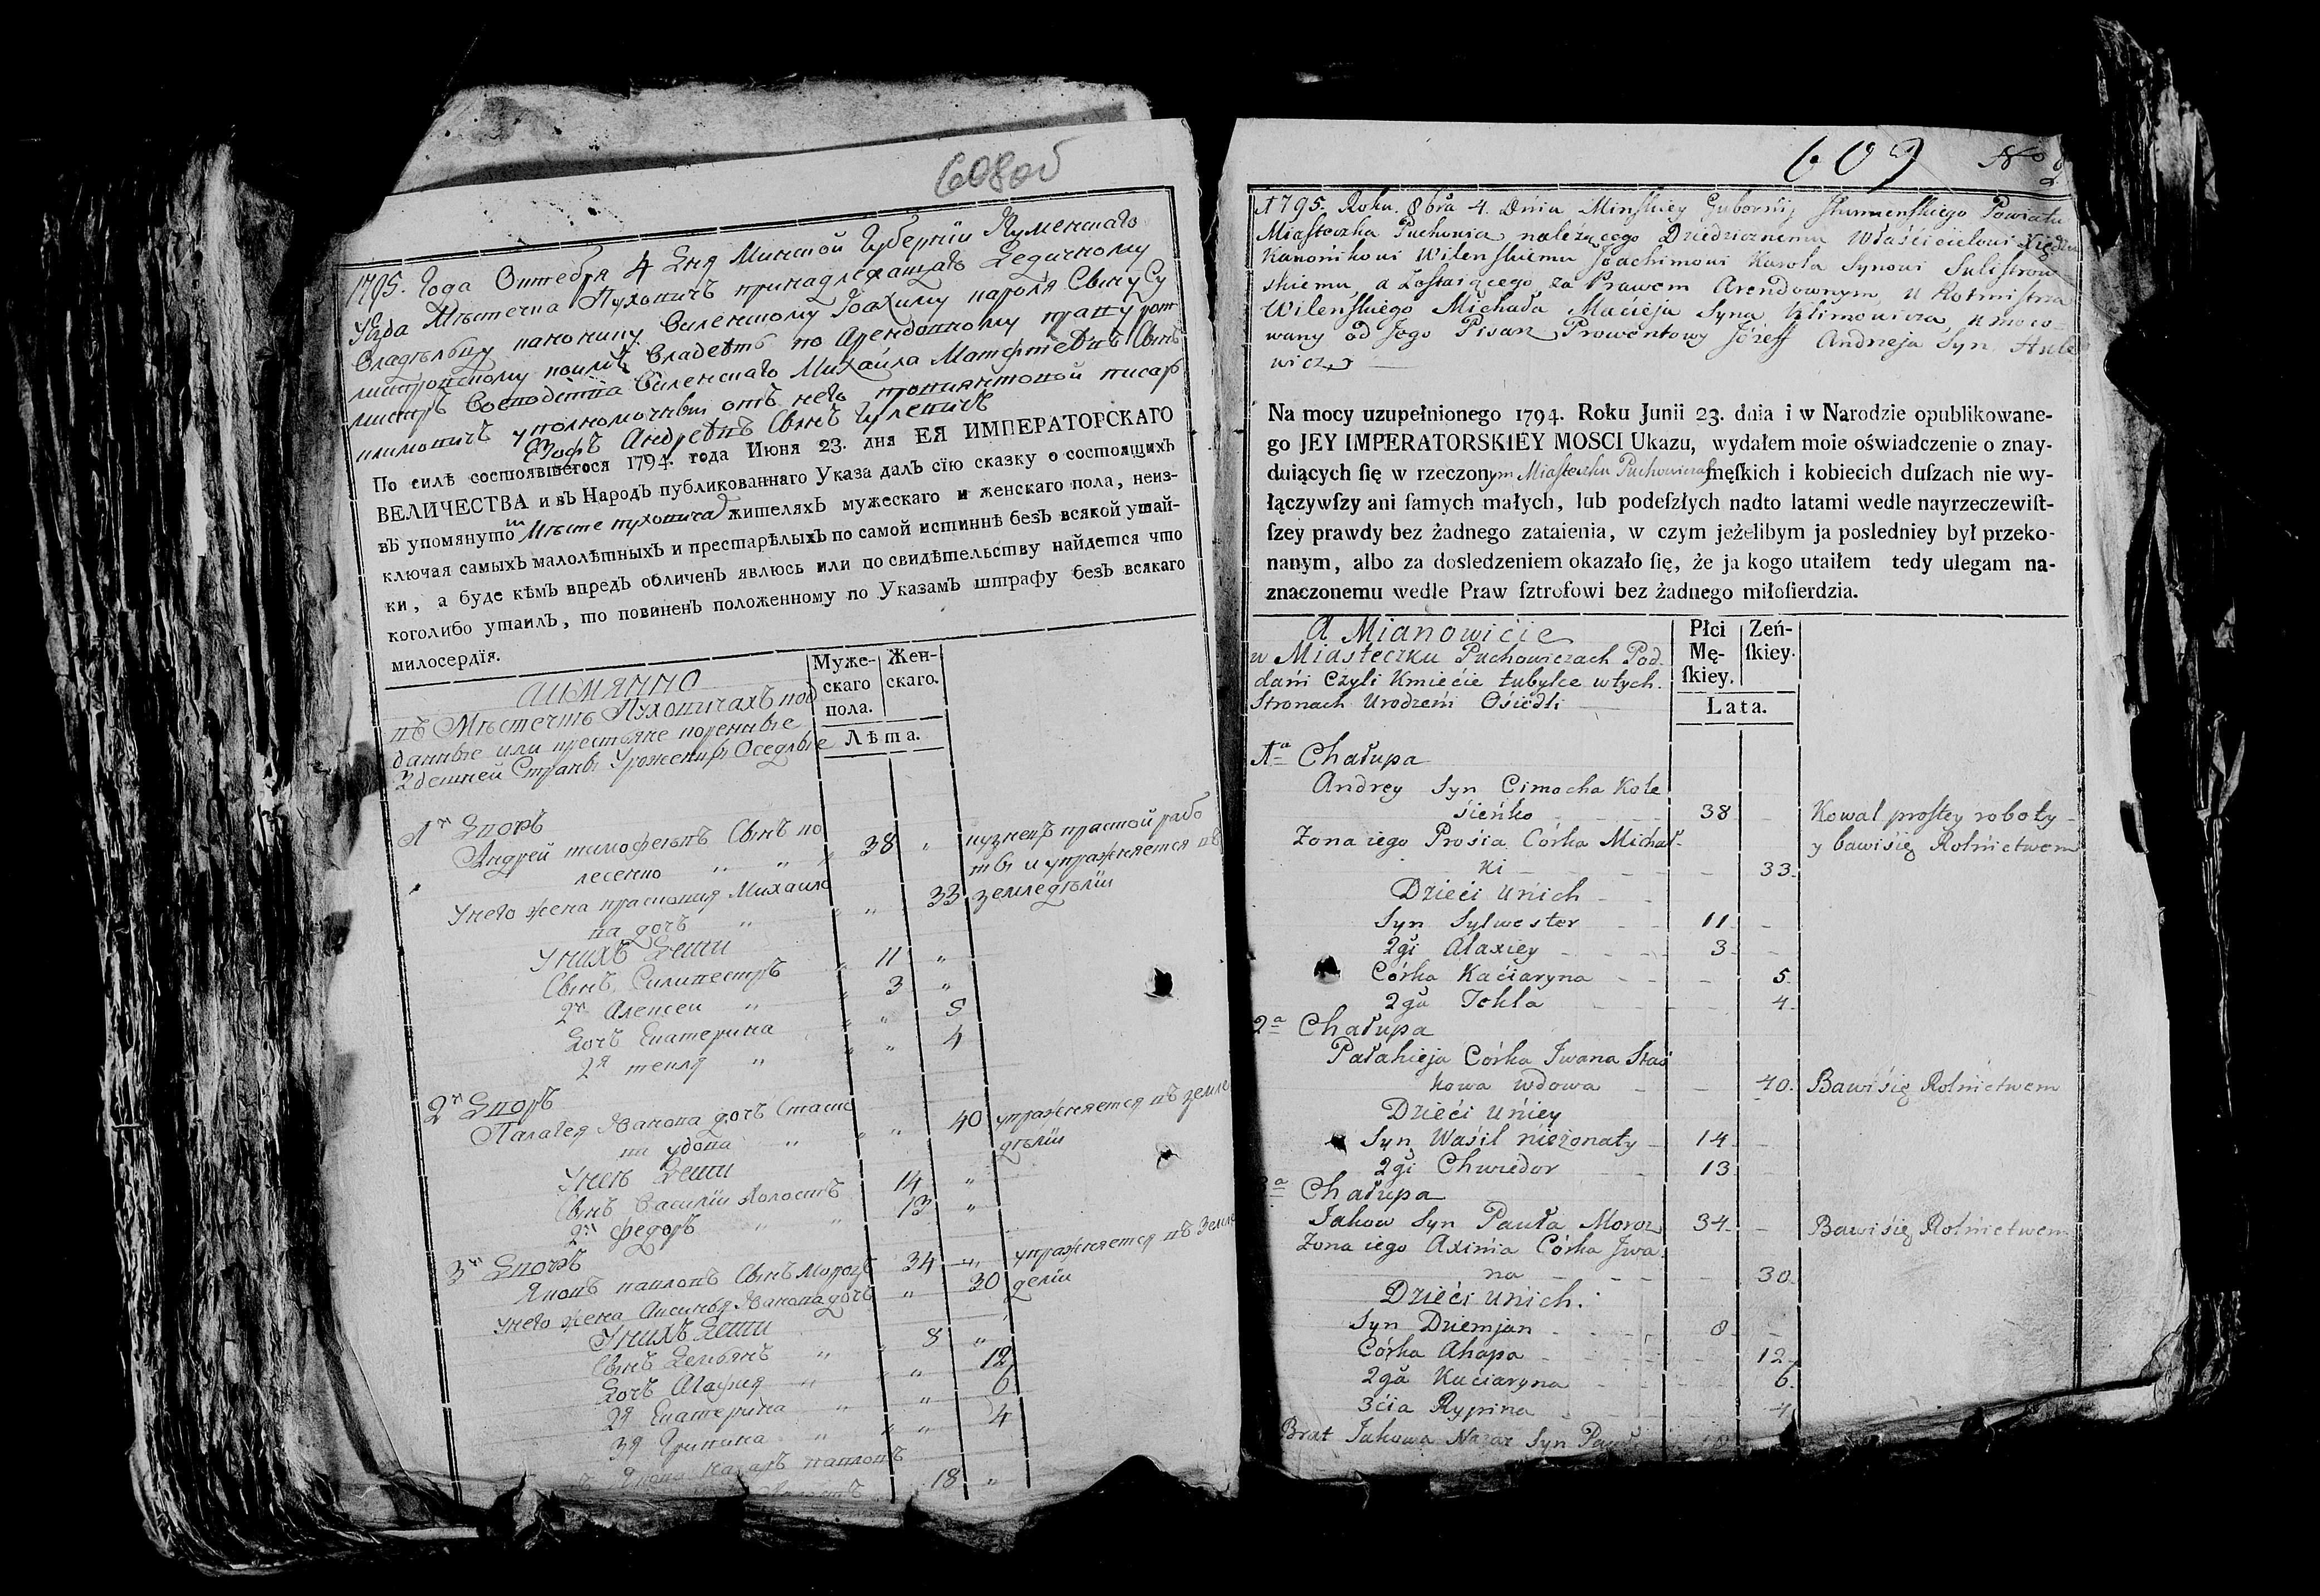 608об
1795. Года Октебря 4 Дня Минской Губернїи Игуменскаго
Уезда Мѣстечка Пуховичъ принадлежащаго Дедичному
Владѣльцу канонику Виленскому Іоахиму Кароля Сыну Су
листровскому коимъ владеетъ по Арендовному праву рот
мистръ Воеводства Виленскаго Михайла Матфѣевъ Сынъ
климовичъ уполномочный отъ него провиантовой писар
Іозефъ Андреевъ Сынъ
По силѣ состоявшегося 1794. года Июня 23. дня ЕЯ ИМПЕРАТОРСКАГО
ВЕЛИЧЕСТВА и въ Народъ публикованнаго Указа далъ сїю сказку о состоящихъ
въ упомянутом Мѣсте пуховичах жителяхъ мужескаго и женскаго пола, неиз-
ключая самыхъ малолѣтныхъ и престарѣлыхъ по самой истиннѣ безъ всякой утай-
ки, а буде кѣмъ впредъ обличенъ явлюсь или по свидѣтельству найдется что
коголибо утаилъ, то повиненъ положенному по Указамъ штрафу безъ всякаго
милосердїя.
аимянно
въ Мѣстечкѣ Пуховичахъ под
данные или крестьяне коренные
Здешней Страны Урожен. Оседлые
Муже-
скаго
пола.
Жен-
скаго.
Лѣта.
1й Дворъ
Андрей тимофеевъ Сынъ ко
лесенко „ „ „ 38 „ кузнецъ простой рабо
ты и упражняется въ
земледѣлїи
У него жена прасковия Михайло
ва дочь „ „ „ 33
У нихъ Дети
Сынъ Силивестръ „ 11 „
2й Алексеи „ „ 3 „
Дочь Екатерина „ „ 5
2я текля „ „ „ 4
2й Дворъ
Палагея Иванова дочъ Стась
ко вдова „ „ „ 40 упражняется въ земле
дѣлїи
У неѣ Дети
Сынъ Василїи Холостъ 14 „
2й федоръ „ „ 13 „
3й Дворъ
Яковъ павловъ Сынъ Морозъ 34 „ упражняется въ Земле
делїи
У него жена Аксинья Иванова дочъ „ 30
У нихъ Дети
Сынъ Демьянъ „ „ 8 „
Дочъ Агафия „ „ „ 12
2я Екатерина „ „ 6
3я Грипина „ „ „ 4
Якова Назаръ павловъ
18 „
609 No
1795. Roku. 8bra 4. Dńia Minſkiey Gubernij Ihumenſkiego Powiatu
Miaſteczka Puchowicz należącego Dziedzicznemu Właśćićielowi Xiędzu
Kanońikowi Wilenſkiemu Joachimowi Karola Synowi Suliſtrow
skiemu, a Zoſtaiącego za Prawem Arendownym, u Rotmiſtrza
Wileńſkiego Michała Maćieja Syna Klimowicza, umoco-
wany od Jego Pisarz Prowentowy Józeff Andrzeja Syn
wicz
Na mocy uzupełnionego 1794. Roku Junii 23. dnia i w Narodzie opublikowane-
go JEY IMPERATORSKIEY MOSCI Ukazu, wydałem moie oświadczenie o znay-
duiących ſię w rzeczonym Miaſteczku Puchowiczach męſkich i kobiecich duſzach nie wy-
łączywſzy ani ſamych małych, lub podeſzłych nadto latami wedle nayrzeczewiſt-
ſzey prawdy bez żadnego zataienia, w czym jeżelibym ja posledniey był przeko-
nanym, albo za dosledzeniem okazało ſię, że ja kogo utaiłem tedy ulegam na-
znaczonemu wedle Praw ſztrofowi bez żadnego miłoſierdzia.
A Mianowićie
w Miasteczku Puchowiczach Pod
dańi Czyli Kmiećie tubylce wtych
Stronach Urodzeńi Ośiedli
Płci
Mę-
ſkiey.
Zeń-
ſkiey.
Lata.
1a Chałupa
Andrey Syn Cimocha Kole
śieńko 38 - Kowal proſtey roboty
y bawiśię Rolńictwem
Zona iego Prośia Córka Michał
ki - 33
Dzieći Uńich
Syn Sylwester 11 -
2gi Alaxiey 3 -
Córka Kaćiaryna - 5
2ga Tekla - 4
2a Chałupa
Pałahieja Córka Jwana Staś
kowa Wdowa - 40. Bawiśię Rolńictwem
Dzieći Uńiey
Syn Waśil nieżonaty 14 -
2gi Chwiedor 13
3a Chałupa
Jakow Syn Pawła Moroz 34 - Bawiśię Rolńictwem
Zona iego Axińia Córka Jwa
na - 30
Dzieći Uńich.
Syn Dziemjan 8 -
Córka Ahapa - 12
2ga Kaćiaryna - 6
3ćia Rypina - 4
Brat Jakowa Nazar Syn